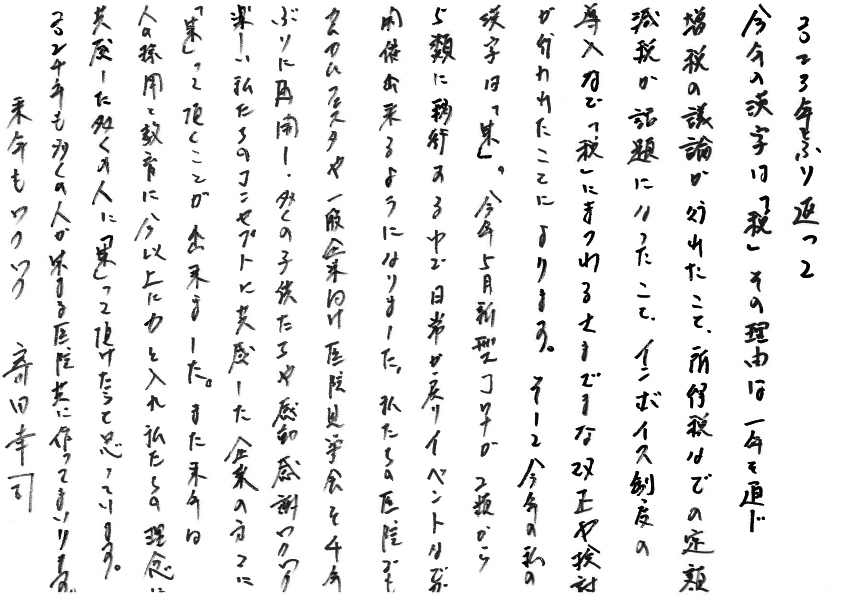 2023年をふり返って
今年の漢字は「税」その理由は一年を通じ
増税の議論が行れたこと、所得税などの定額
減税が話題になったこと、インボイス制度の
導入など「税」にまつわるさまざまな改正や検討
が行われたことによります。そして今年の私の
漢字は「集」。今年5月新型コロナが2類から
5類に移行する中で日常が戻りイベントなどが
開催出来るようになりました。私たちの医院でも
カムカムフェスタや一般企業向け医院見学会を4年
ぶりに再開し、多くの子供たちや感動感謝ワクワク
楽しい私たちのコンセプトに共感した企業の方々に
「集」って頂くことが出来ました。また来年は
人の採用と教育に今以上に力を入れ私たちの理念に
共感した多くの人に「集」って頂けたらと思っています。
2024年も多くの人が集まる医院共に作ってまいります。
来年もワクワク 幸司